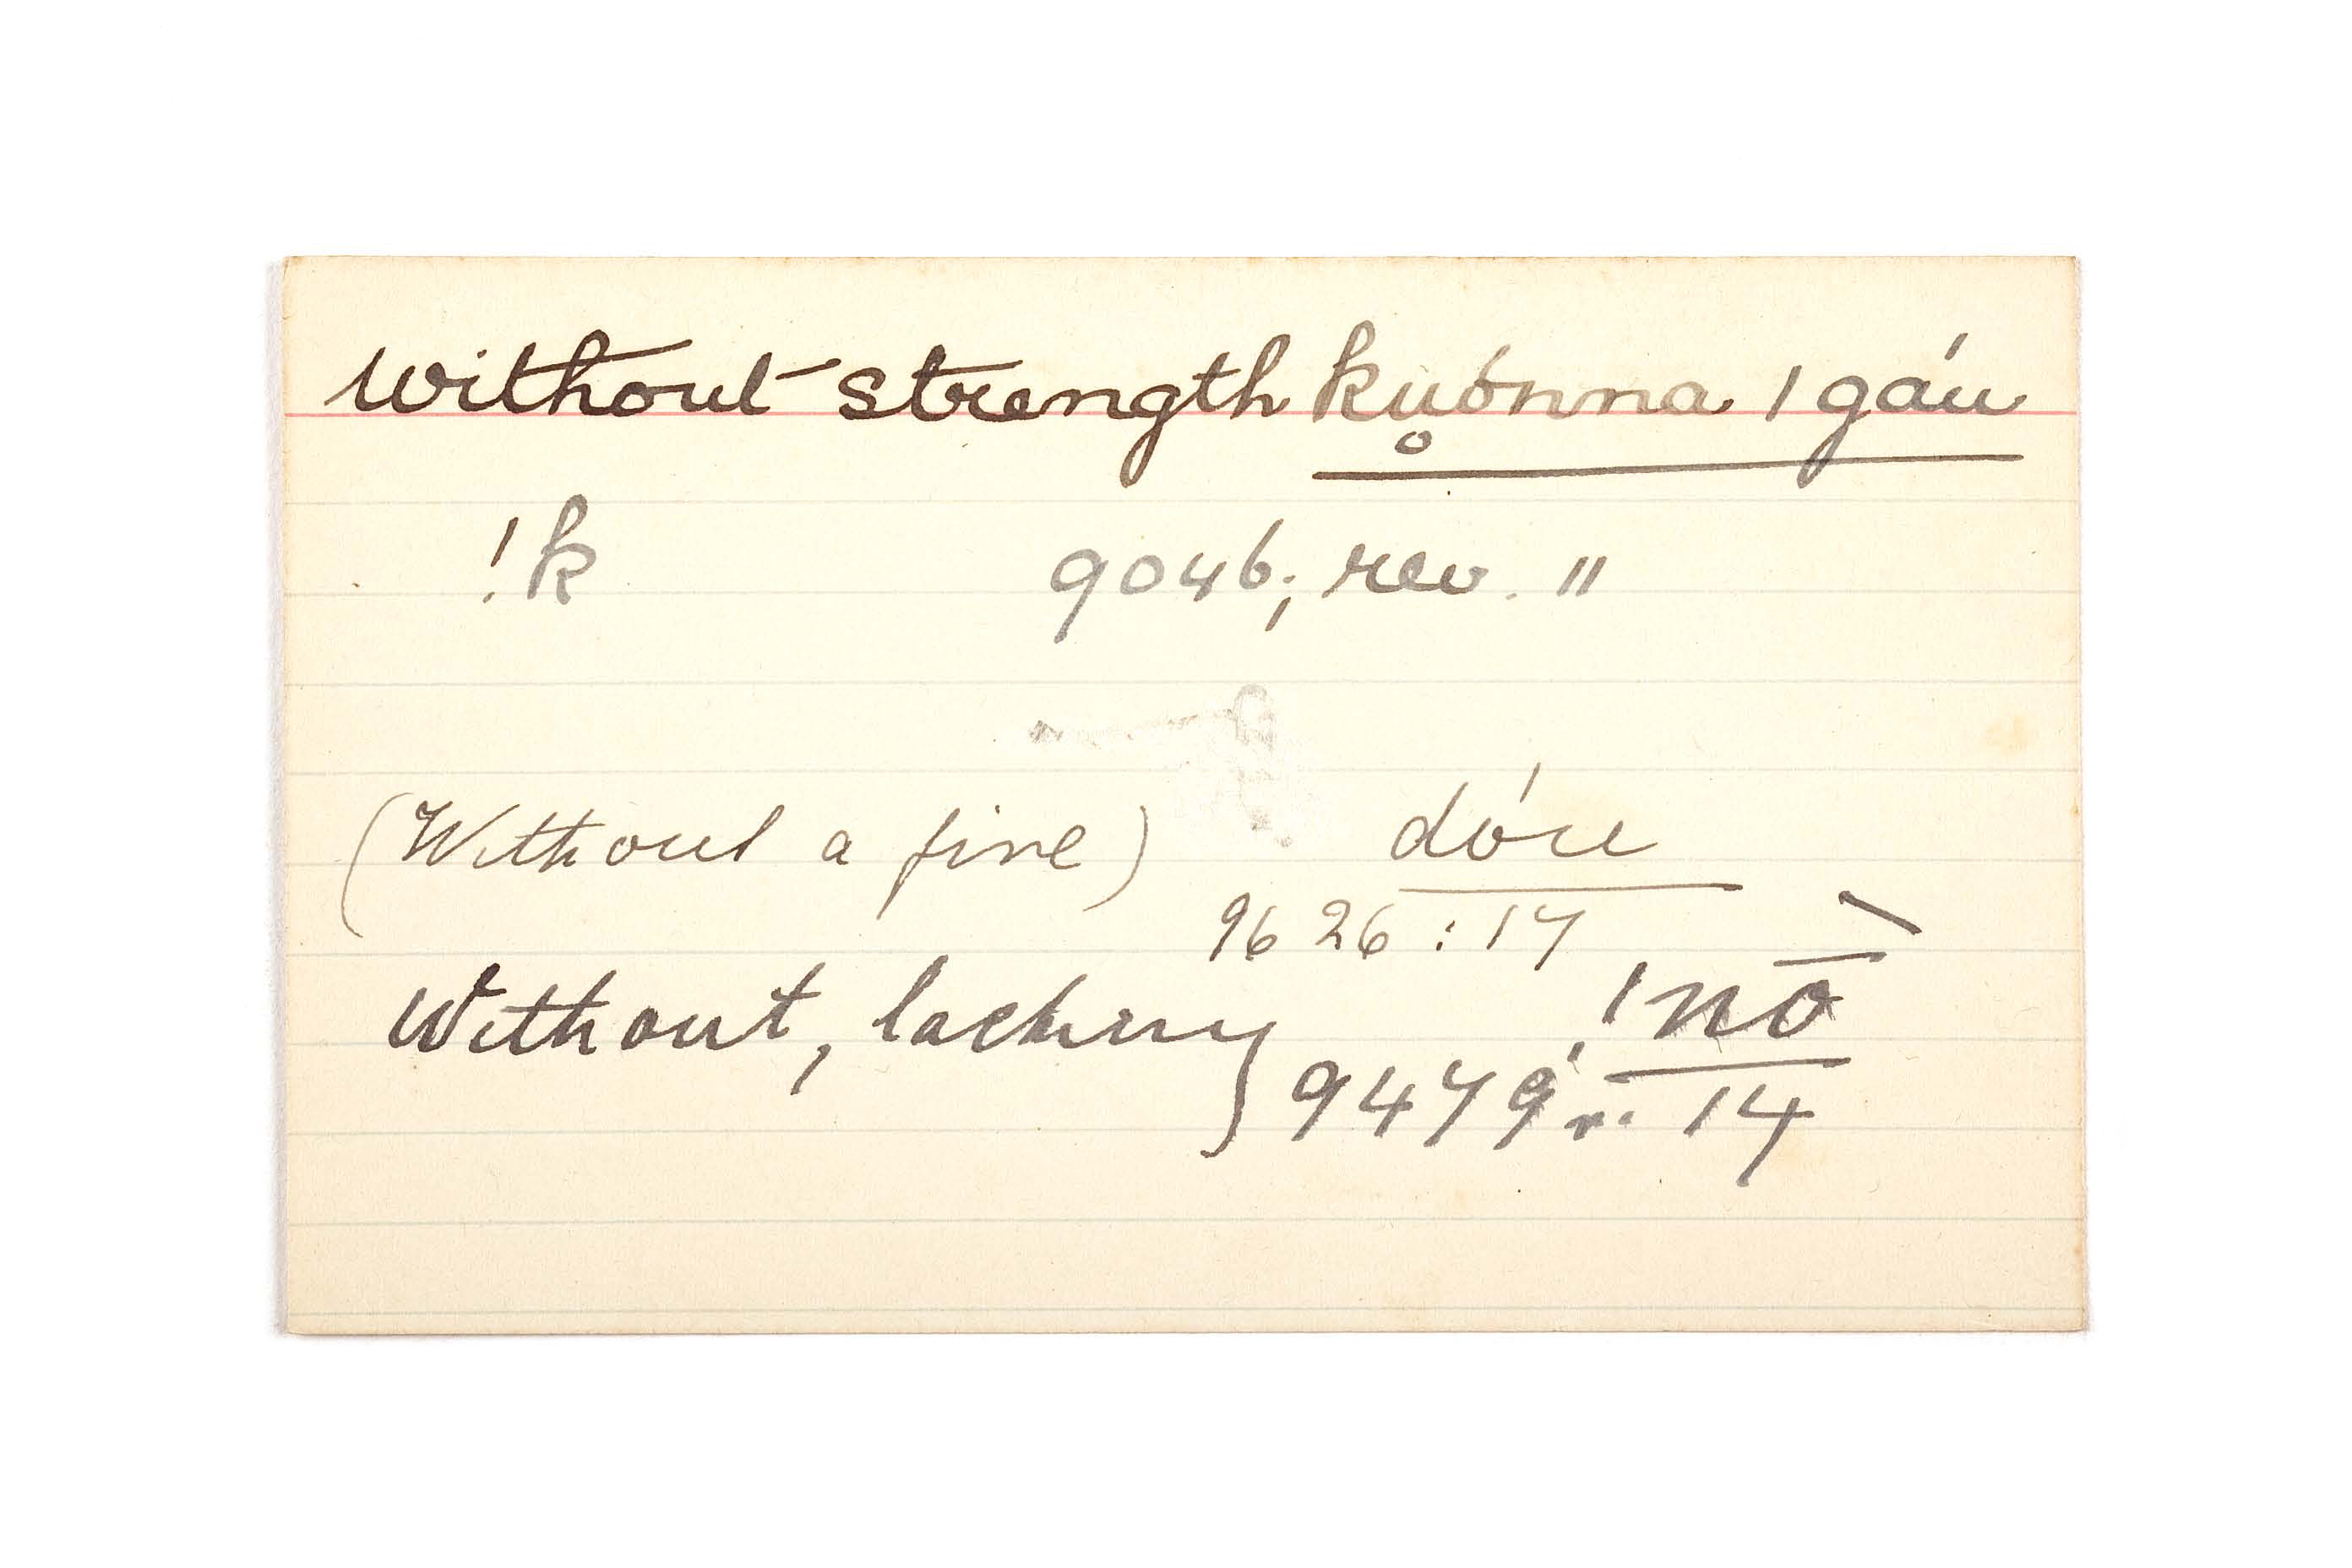 without strength ku̥ónna | gáu
!k 9046; rev. "
(Without a fire) dóu
9626:17
Without, lacking } !nō
9479 r. 14